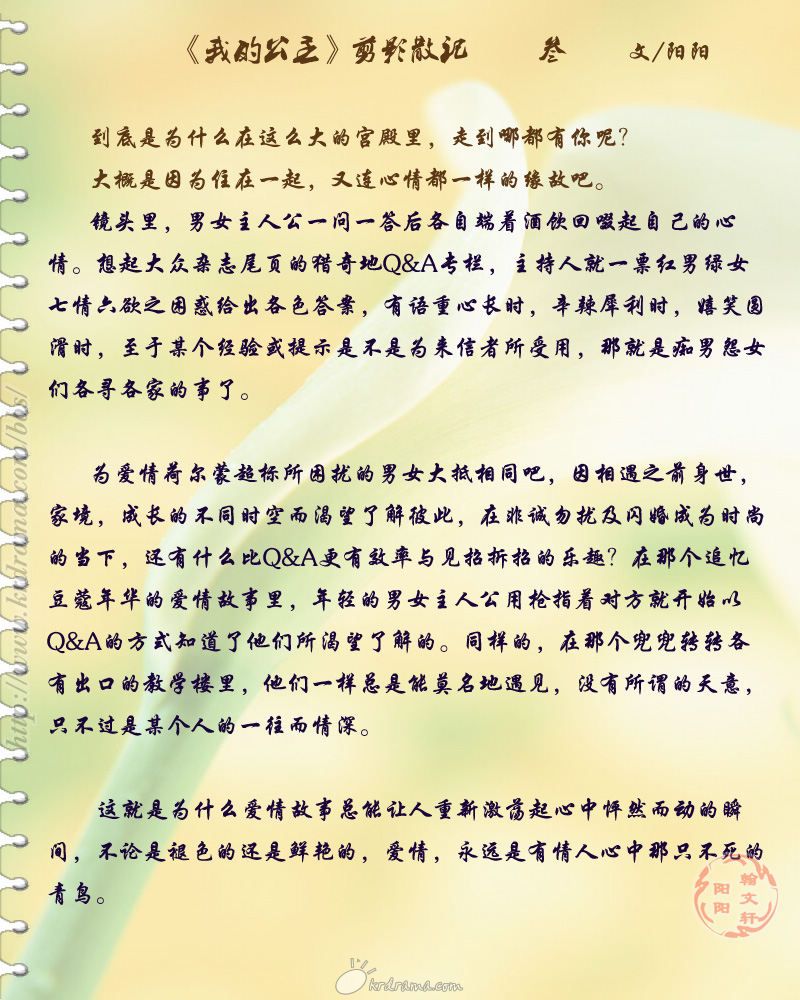 《我的公主》剪影散记 叁 文/阳阳
到底是为什么在这么大的宫殿里，走到哪都有你呢？
大概是因为住在一起，又连心情都一样的缘故吧。
镜头里，男女主人公一问一答后各自端着酒饮回啜起自己的心
情。想起大众杂志尾页的猎奇地Q&A专栏，主持人就一票红男绿女
七情六欲之困惑给出各色答案，有语重心长时，辛辣犀利时，嬉笑圆
滑时，至于某个经验或提示是不是为来信者所受用，那就是痴男怨女
们各寻各家的事了。
为爱情荷尔蒙超标所困扰的男女大抵相同吧，因相遇之前身世，
家境，成长的不同时空而渴望了解彼此，在非诚勿扰及闪婚成为时尚
的当下，还有什么比Q&A更有效率与见招拆招的乐趣？在那个追忆
豆蔻年华的爱情故事里，年轻的男女主人公用枪指着对方就开始以
Q&A的方式知道了他们所渴望了解的。同样的，在那个兜兜转转各
有出口的教学楼里，他们一样总是能莫名地遇见，没有所谓的天意，
只不过是某个人的一往而情深。
这就是为什么爱情故事总能让人重新激荡起心中怦然而动的瞬
间，不论是褪色的还是鲜艳的，爱情，永远是有情人心中那只不死的
青鸟。
翰文轩
阳阳
krdrama.com
http://www.krdrama.com/bbs/